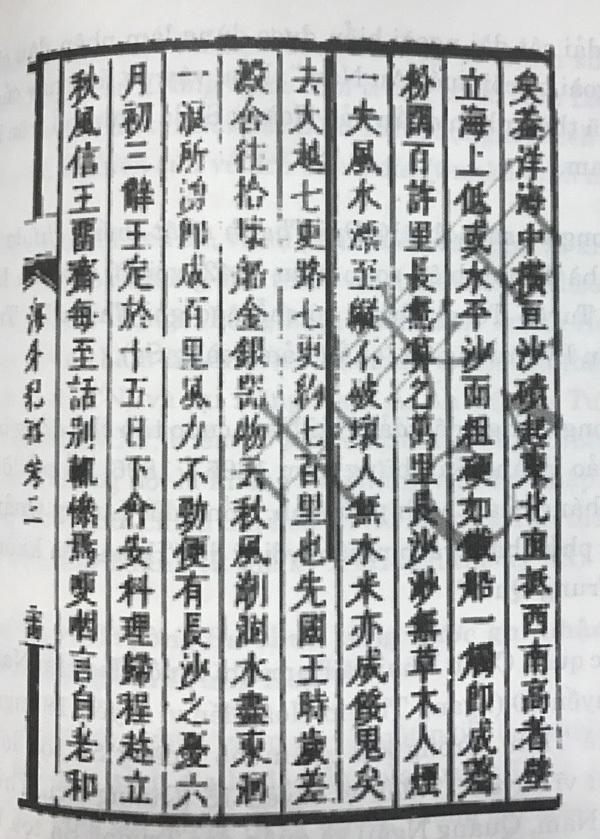 矣蓋洋海中橫亘沙磧起東北直抵西南高者壁
立海上低或水平沙面粗硬如鐵船一觸即成齏
粉闊百許里長無算名萬里長沙渺無草木人煙
一失風水漂至縱不破壞人無水米亦成餒鬼矣
去大越七更路七更約七百里也先國王時歲差
澱舍往拾金銀器物云秋風潮涸水盡東洄
一浪所湧即成百里風力不勁便有長沙之憂六
月初三辭王定於十五日下會安料理歸程趂立
秋風信王留齋每至話別輒慘焉哽咽言自老和
海外紀事 卷三